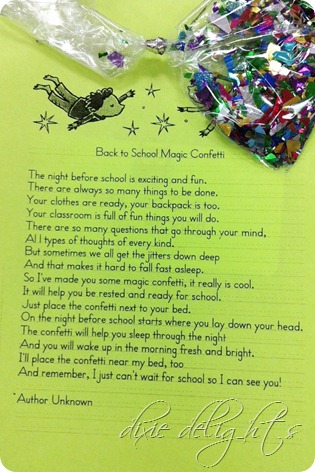 Back to School Magic Confetti
The night before school is exciting and fun.
There are always so many things to be done.
Your clothes are ready, your backpack is too.
Your classroom is full of fun things you will do.
There are so many questions that go through your mind,
All types of thoughts of every kind.
But sometimes we all get the jitters down deep
And that makes it hard to fall fast asleep.
So I've made you some magic confetti, it really is cool.
It will help you be rested and ready for school.
Just place the confetti next to your bed.
On the night before school starts where you lay down your head.
The confetti will help you sleep through the night
And you will wake up in the morning fresh and bright.
I'll place the confetti near my bed, too
And remember, I just can't wait for school so I can see you!
*Author Unknown
dixie delights